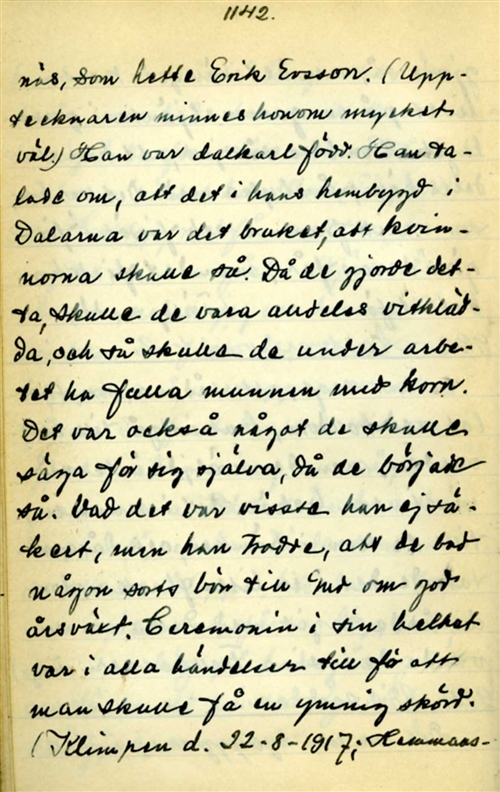 1142.
näs, som hette Erik Ersson. (Upp-
tecknaren minnes honom mycket
väl.) Han var dalkarl född. Han ta-
lade om, att det i hans hembygd i
Dalarna var det bruket, att kvin-
norna skulle så. Då de gjorde det-
ta, skulle de vara alldeles vitkläd-
da, och så skulle de under arbe-
tet ha fulla munnen med korn.
Det var också något de skulle
säga för sig själva, då de började
så. Vad det var visste han ej sä-
kert, men han trodde, att de bad
någon sorts bön till Gud om god
årsväxt. Ceremonin i sin helhet
var i alla händelser till för att
man skulle få en ymnig skörd.
(Klimpen d. 22-8-1917; Hemmans-